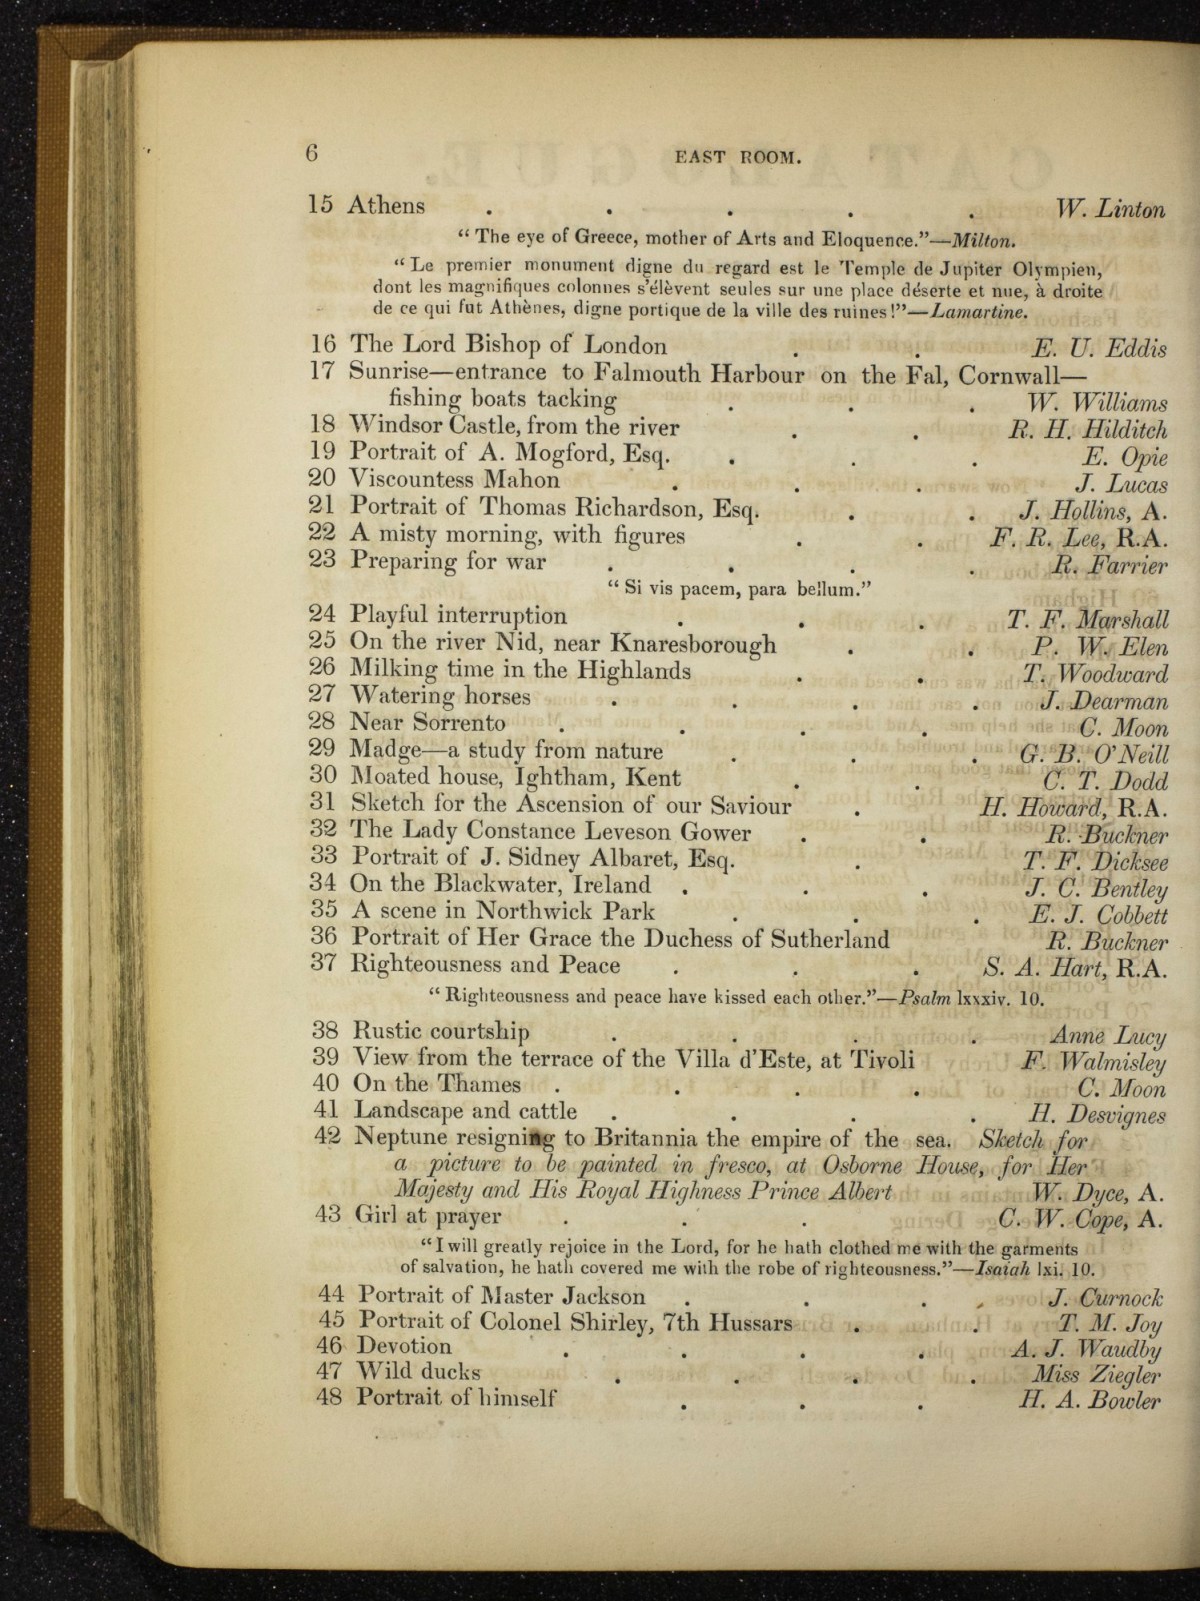 6 EAST ROOM.
15 Athens . . . . . W. Linton
“ The eye of Greece, mother of Arts and Eloquence.”—Milton.
“ Le premier monument digne du regard est le Temple de Jupiter Olympien,
dont les magnifiques colonnes s'élèvent seules sur une place déserte et nue, à droite
de ce qui fut Athènes, digne portique de la ville des ruines!”—Lamartine.
16 The Lord Bishop of London . . E. U. Eddis
17 Sunrise—entrance to Falmouth Harbour on the Fal, Cornwall—
fishing boats tacking . . . W. Williams
18 Windsor Castle, from the river . . R. H. Hilditch
19 Portrait of A. Mogford, Esq. . . . E. Opie
20 Viscountess Mahon . . . J. Lucas
21 Portrait of Thomas Richardson, Esq. . . J. Hollins, A.
22 A misty morning, with figures . . F. R. Lee, R.A.
23 Preparing for war . . . . R. Farrier
“ Si vis pacem, para bellum.”
24 Playful interruption . . . T. F. Marshall
25 On the river Nid, near Knaresborough . . P. W. Elen
26 Milking time in the Highlands . . T. Woodward
27 Watering horses . . . . J. Dearman
28 Near Sorrento . . . . C. Moon
29 Madge—a study from nature . . . G. B. O'Neill
30 Moated house, Ightham, Kent . . C. T. Dodd
31 Sketch for the Ascension of our Saviour . H. Howard, R.A.
32 The Lady Constance Leveson Gower . . R. Buckner
33 Portrait of J. Sidney Albaret, Esq. . T. F. Dicksee
34 On the Blackwater, Ireland . . . J. C. Bentley
35 A scene in Northwick Park . . . E. J. Cobbett
36 Portrait of Her Grace the Duchess of Sutherland R. Buckner
37 Righteousness and Peace . . . S. A. Hart, R.A.
“ Righteousness and peace have kissed each other.”—Psalm lxxxiv. 10.
38 Rustic courtship . . . . Anne Lucy
39 View from the terrace of the Villa d'Este, at Tivoli F. Walmisley
40 On the Thames . . . . C. Moon
41 Landscape and cattle . . . . H. Desvignes
42 Neptune resigning to Britannia the empire of the sea. Sketch for
a picture to be painted in fresco, at Osborne House, for Her
Majesty and His Royal Highness Prince Albert W. Dyce, A.
43 Girl at prayer . . . C. W. Cope, A.
“ I will greatly rejoice in the Lord, for he hath clothed me with the garments
of salvation, he hath covered me with the robe of righteousness.”—Isaiah lxi. 10.
44 Portrait of Master Jackson . . . J. Curnock
45 Portrait of Colonel Shirley, 7th Hussars . . T. M. Joy
46 Devotion . . . . A. J. Waudby
47 Wild ducks . . . . Miss Ziegler
48 Portrait of himself . . . H. A. Bowler